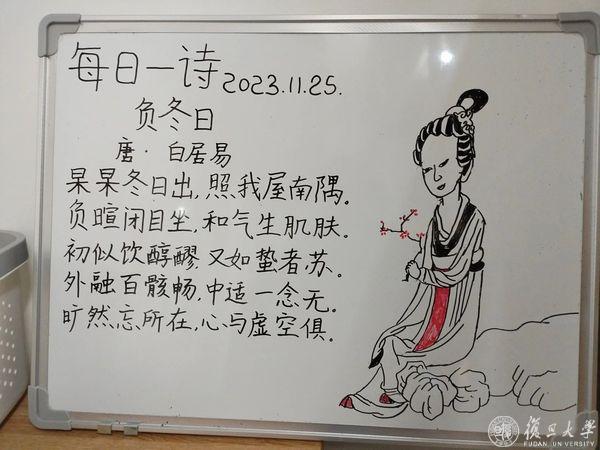 每日一诗 2023.11.25.
负冬日
唐·白居易
杲杲冬日出,照我屋南隅。
负暄闭目坐,和气生肌肤。
初似饮醇醪,又如蛰者苏。
外融百骸畅,中适一念无。
旷然忘所在,心与虚空俱。
復旦大学
FUDAN UNIVERSITY